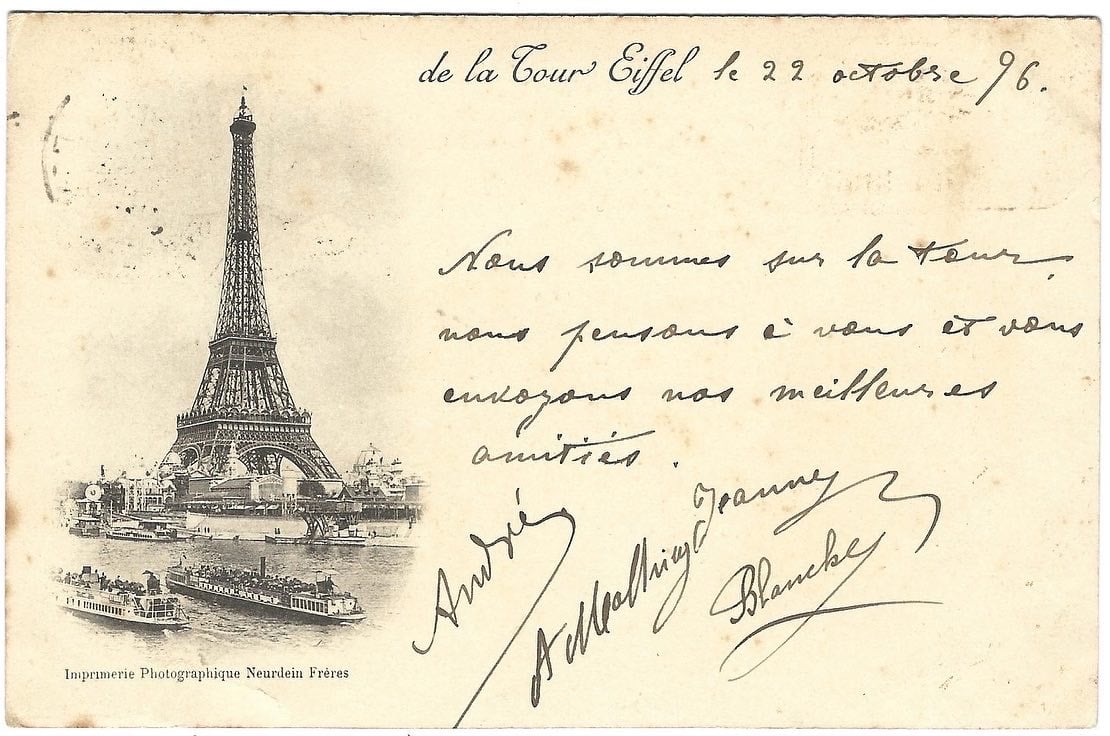 de la Tour Eiffel le 22 octobre 96.
Nous sommes sur la tour,
nous pensons à vous et vous
envoyons nos meilleures
amitiés.
André
Jeanne
Blanche
Imprimerie Photographique Neurdein Frères